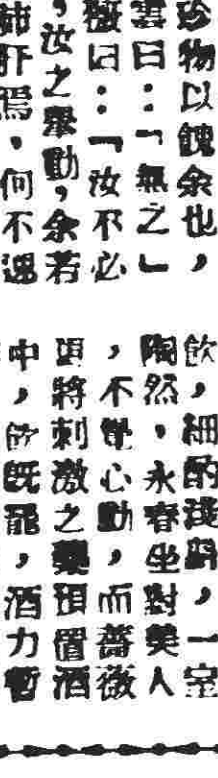 珍物以餽余也，
雲曰：「無之」
薇曰：「汝不必
，汝之舉動，余若
肺肝焉，何不邀
飲，細酌淺斟，一室
陶然，永春坐對美人
，不覺心動，而薔薇
更將刺激之藥預置酒
中，飲既罷，酒力暫